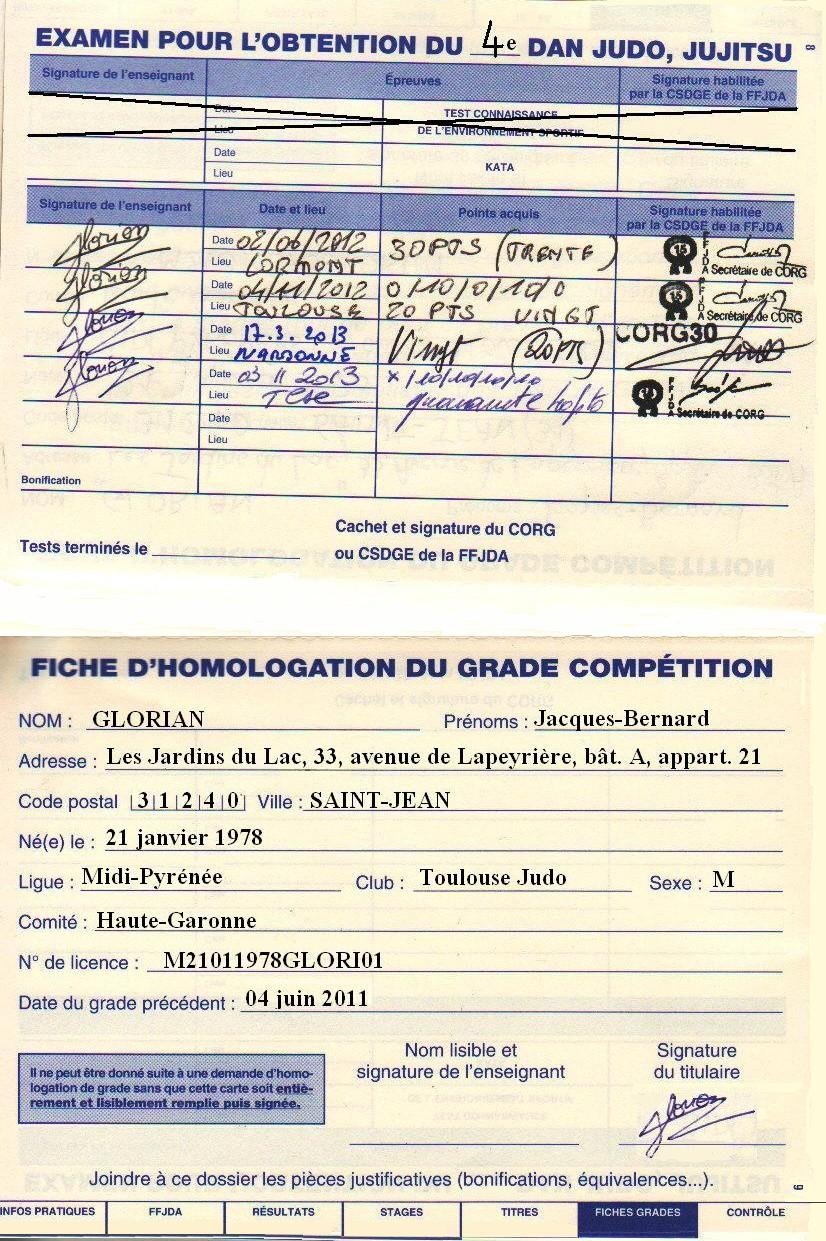 EXAMEN POUR L'OBTENTION DU 4e DAN JUDO, JUJITSU
8
Signature de l'enseignant Épreuves Signature habilitée par la CSDGE de la FFJDA
Date TEST CONNAISSANCE
Lieu DE L'ENVIRONNEMENT SPORTIF
Date KATA
Lieu
Signature de l'enseignant Date et lieu Points acquis Signature habilitée par la CSDGE de la FFJDA
Glorian Date 02/06/2012 30PTS (TRENTE) 15 FFJDA
Lieu LORMONT Secrétaire de CORG
Glorian Date 04/11/2012 0/10/0/10/0 15 FFJDA
Lieu TOULOUSE 20 PTS VINGT Secrétaire de CORG
Glorian Date 17.3.2013 Vingt (20PTS) CORG30
Lieu NARBONNE
Glorian Date 03 11 2013 x/10/10/10/10 FFJDA
Lieu quarante Secrétaire de CORG
Date
Lieu
Bonification
Cachet et signature du CORG
Tests terminés le ou CSDGE de la FFJDA
FICHE D'HOMOLOGATION DU GRADE COMPÉTITION
NOM : GLORIAN Prénoms : Jacques-Bernard
Adresse : Les Jardins du Lac, 33, avenue de Lapeyrière, bât. A, appart. 21
Code postal 31240 Ville : SAINT-JEAN
Né(e) le : 21 janvier 1978
Ligue : Midi-Pyrénée Club : Toulouse Judo Sexe : M
Comité : Haute-Garonne
N° de licence : M21011978GLORI01
Date du grade précédent : 04 juin 2011
Il ne peut être donné suite à une demande d'homo-
logation de grade sans que cette carte soit entiè-
rement et lisiblement remplie puis signée.
Nom lisible et
signature de l'enseignant
Signature
du titulaire
Glorian
Joindre à ce dossier les pièces justificatives (bonifications, équivalences...).
9
INFOS PRATIQUES FFJDA RÉSULTATS STAGES TITRES FICHES GRADES CONTRÔLE